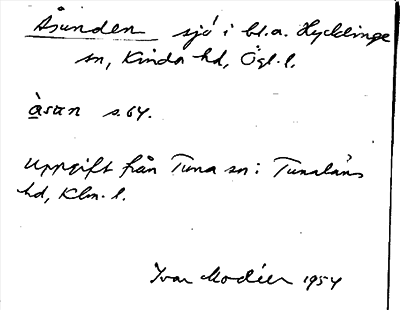 Åsunden sjö i bl.a. Hycklinge
sn, Kinda hd, Ögl. l.
àsan s. 64.
Uppgift från Tuna sn i Tunaläns
hd, Klm. l.
Ivar Modéer 1954